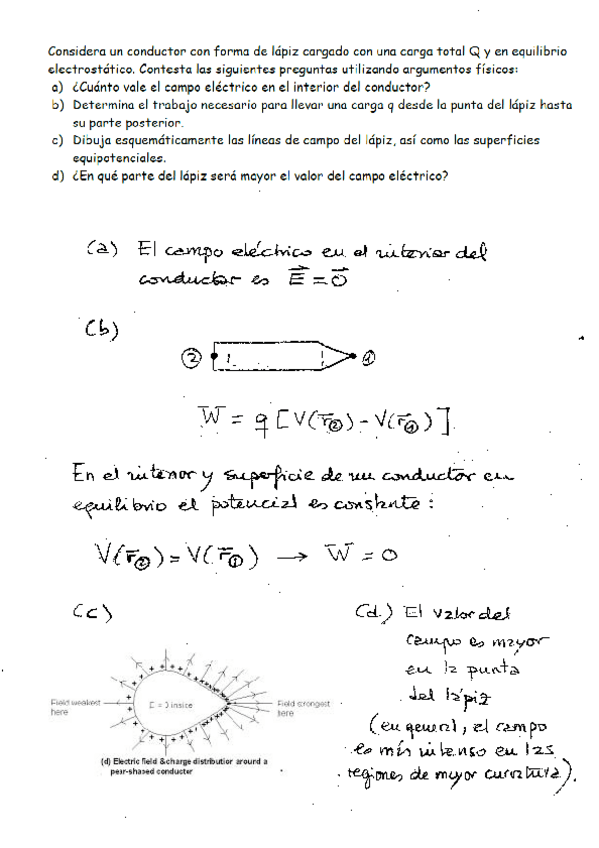 Considera un conductor con forma de lápiz cargado con una carga total Q y en equilibrio
electrostático. Contesta las siguientes preguntas utilizando argumentos físicos:
a) ¿Cuánto vale el campo eléctrico en el interior del conductor?
b) Determina el trabajo necesario para llevar una carga q desde la punta del lápiz hasta
su parte posterior.
c) Dibuja esquemáticamente las líneas de campo del lápiz, así como las superficies
equipotenciales.
d) ¿En qué parte del lápiz será mayor el valor del campo eléctrico?
(a) El campo eléctrico en el interior del
conductor es E⃗ = 0⃗
(b)
② ①
W = q [V(r⃗②) - V(r⃗①)]
En el interior y superficie de un conductor en
equilibrio el potencial es constante:
V(r⃗②) = V(r⃗①) → W = 0
(c)
Field weakest
here
E = 0 inside
Field strongest
here
(d) Electric field & charge distribution around a
pear-shaped conductor
(d) El valor del
campo es mayor
en la punta
del lápiz
(en general, el campo
es más intenso en las
regiones de mayor curvatura).